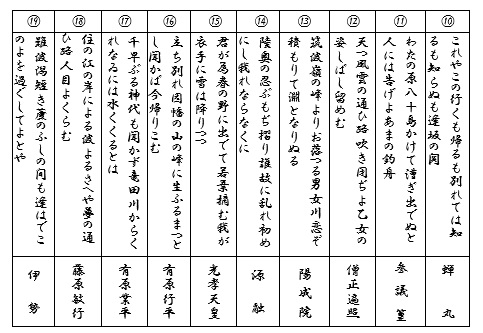 ⑩
これやこの行くも帰るも別れては知
るも知らぬも逢坂の関
蝉丸
⑪
わたの原八十島かけて漕ぎ出でぬと
人には告げよあまの釣舟
参議篁
⑫
天つ風雲の通ひ路吹き閉ぢよ乙女の
姿しばし留めむ
僧正遍照
⑬
筑波嶺の峰よりお落つる男女川恋ぞ
積もりて淵となりぬる
陽成院
⑭
陸奥の忍ぶもぢ摺り誰故に乱れ初め
にし我れならなくに
源融
⑮
君が為春の野に出でて若菜摘む我が
衣手に雪は降りつつ
光孝天皇
⑯
立ち別れ因幡の山の峰に生ふるまつと
し聞かば今帰りこむ
在原行平
⑰
千早ぶる神代も聞かず竜田川からく
れなゐには水くくるとは
有原業平
⑱
住の江の岸による波よるさへや夢の通
ひ路人目よくらむ
藤原敏行
⑲
難波潟短き廣のふしの間も逢はでこ
のよを過ぐしてよとや
伊勢